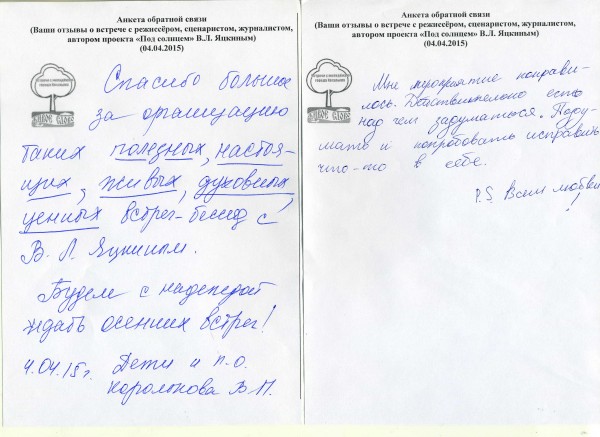 Анкета обратной связи
(Ваши отзывы о встрече с режиссёром, сценаристом, журналистом,
автором проекта «Под солнцем» В.Л. Яцкиным)
(04.04.2015)
ЖИВОЕ СЛОВО
Спасибо большое
за организацию
таких полезных, настоя-
щих, живых, духовных,
ценных встреч-бесед с
В. Л. Яцкиным.
Будем с надеждой
ждать осенних встреч!
4.04.15г. Дети и п.о.
В.П.
Анкета обратной связи
(Ваши отзывы о встрече с режиссёром, сценаристом, журналистом,
автором проекта «Под солнцем» В.Л. Яцкиным)
(04.04.2015)
ЖИВОЕ СЛОВО
Мне мероприятие понрави-
лось. Действительно есть
над чем задуматься. Поду-
мать и попробовать исправить
что-то в себе.
P.S Всем любви!